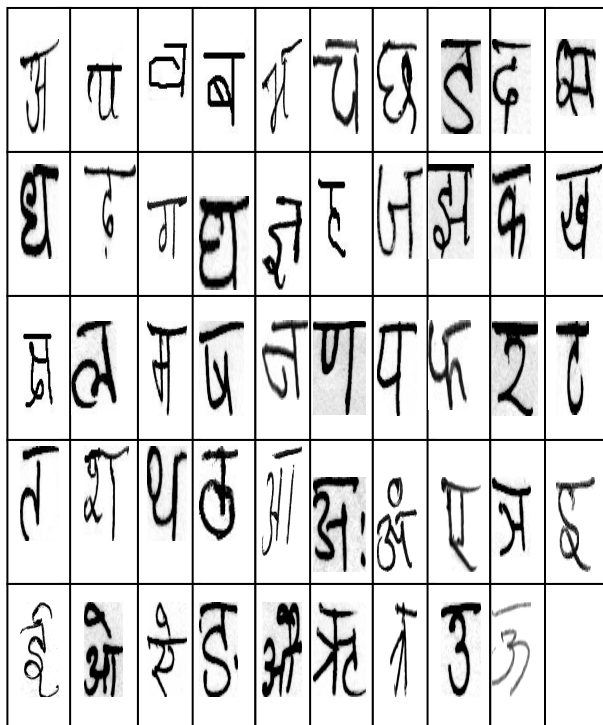 अ व ब भ च छ ड द
ध ढ़ ग घ ज्ञ ह ज झ क ख
ल म ण प फ र ट
त श थ ठ आ अः अं ए इ
ई ओ ऐ ङ औ ऋ त्र उ ऊ